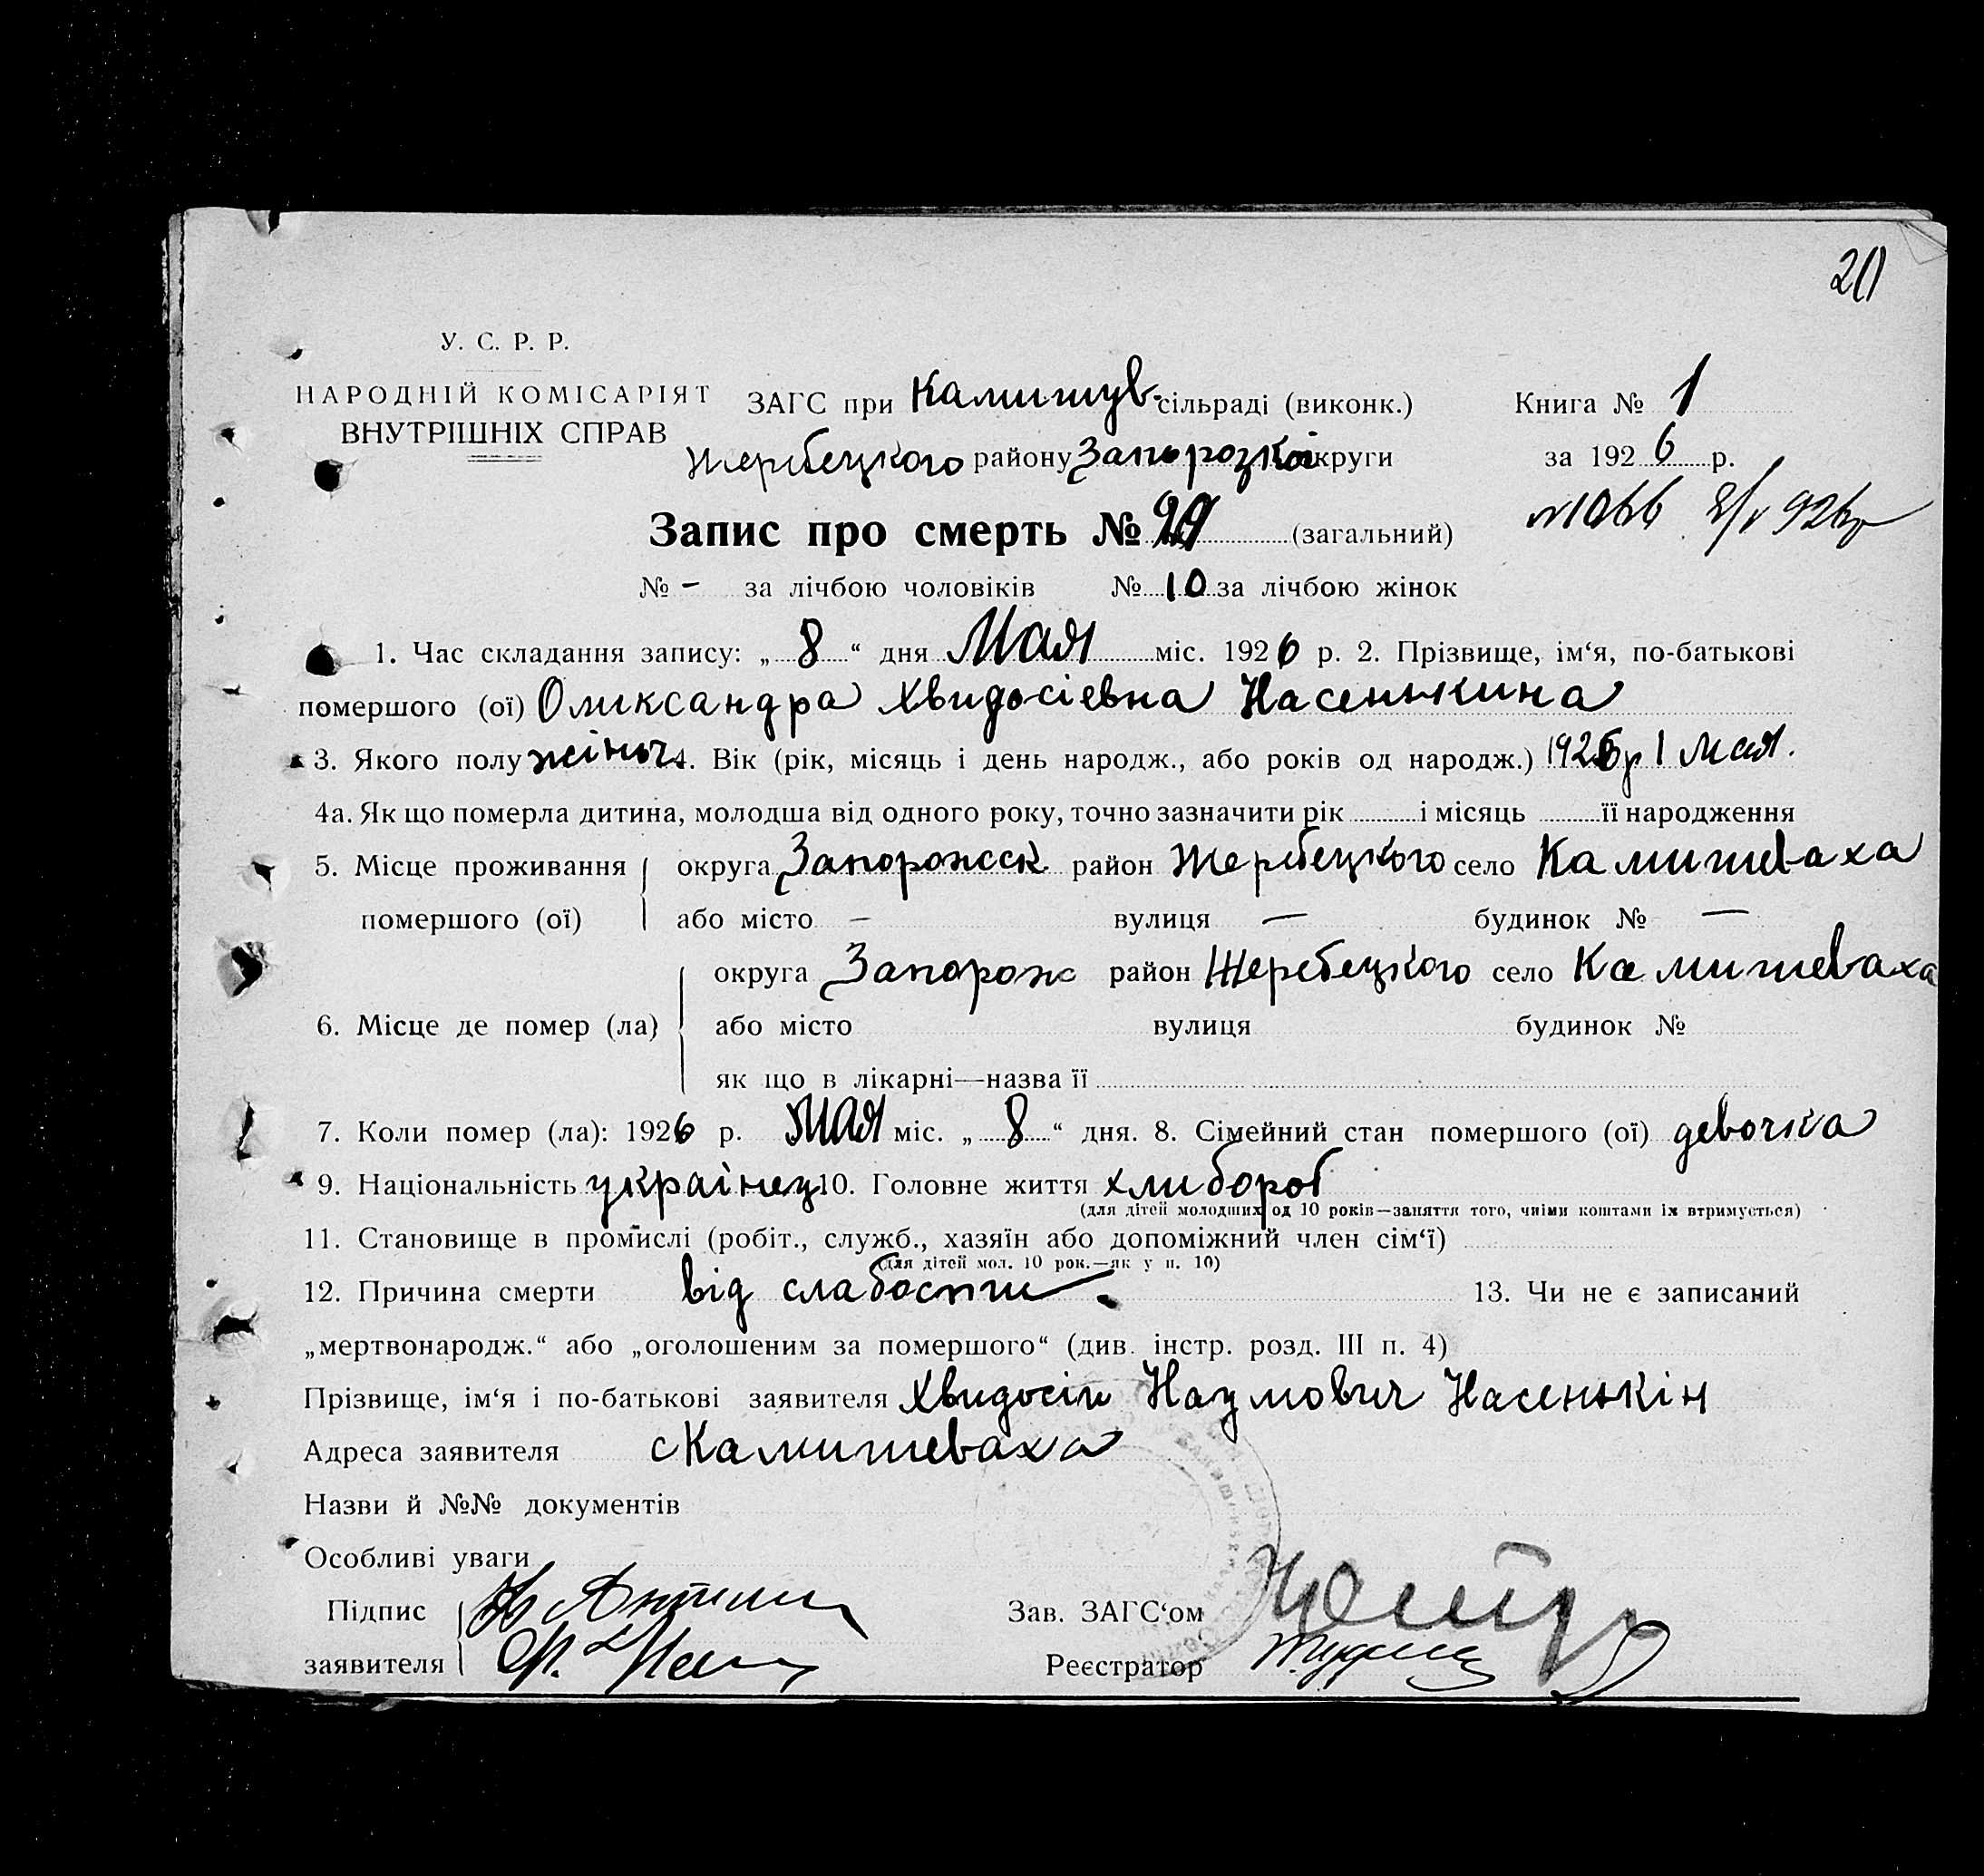 20
У. С. Р. Р.
НАРОДНІЙ КОМІСАРІЯТ
ВНУТРІШНІХ СПРАВ
ЗАГС при Камишув. сільраді (виконк.)
Жеребецкого району Запорозкої округи
Книга № 1
за 1926 р.
Запис про смерть № 29 (загальний)
№1066 8/V 926р
№ - за лічбою чоловіків № 10 за лічбою жінок
1. Час складання запису: „8“ дня Мая міс. 1926 р. 2. Прізвище, ім‘я, по-батькові
помершого (ої) Оликсандра Хвидосіевна Насенькина
3. Якого полу жіноч 4. Вік (рік, місяць і день народж., або років од народж.) 1926р 1 Мая.
4а. Як що померла дитина, молодша від одного року, точно зазначити рік і місяць її народження
5. Місце проживання округа Запорожск район Жеребецкого село Камишеваха
помершого (ої) або місто — вулиця — будинок № —
округа Запорож район Жеребецкого село Камишеваха
6. Місце де помер (ла) або місто вулиця будинок №
як що в лікарні—назва її
7. Коли помер (ла): 1926 р. Мая міс. „8“ дня. 8. Сімейний стан помершого (ої) девочка
9. Національність українец 10. Головне життя хлибороб
(для дітей молодших од 10 років—заняття того, чиїми коштами їх втримується)
11. Становище в промислі (робіт., служб., хазяїн або допоміжний член сім‘ї)
(для дітей мол. 10 рок.—як у п. 10)
12. Причина смерти від слабости. 13. Чи не є записаний
„мертвонародж.“ або „оголошеним за помершого“ (див. інстр. розд. III п. 4)
Прізвище, ім‘я і по-батькові заявителя Хвидосій Наумович Насенькін
Адреса заявителя с Камишеваха
Назви й №№ документів
Особливі уваги
Підпис
заявителя
Зав. ЗАГС‘ом
Реєстратор